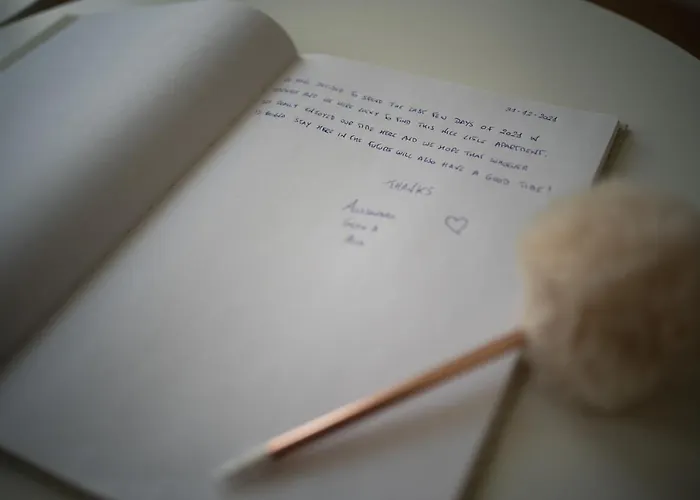 31-12-2021
DECIDED TO SPEND THE LAST FEW DAYS OF 2021 IN
AND WE WERE LUCKY TO FIND THIS NICE LITLE APARTMENT.
REALLY ENJOYED OUR TIME HERE AND WE HOPE THAT WHOEVER
STAY HERE IN THE FUTURE WILL ALSO HAVE A GOOD TIME!
THANKS